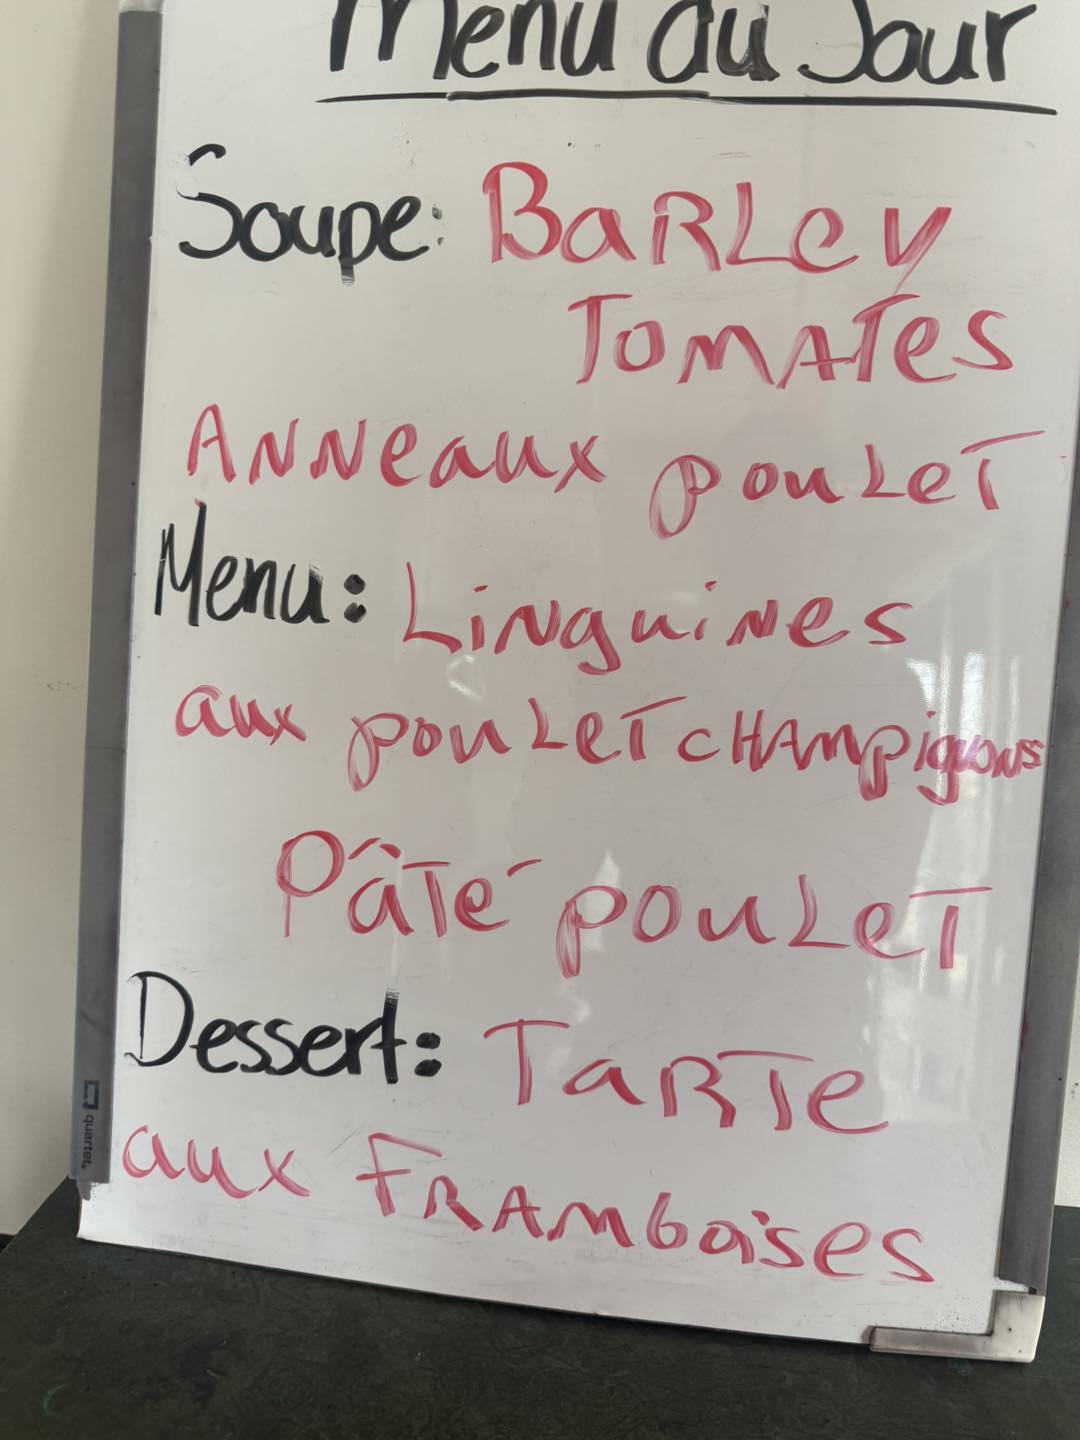 Menu du Jour
Soupe: BaRLey
TomaTes
ANNeaux pouLeT
Menu: LiNguiNes
aux pouLeT cHAmpignons
Pâté pouLeT
Dessert: TaRTe
aux FRAmboises
quartet